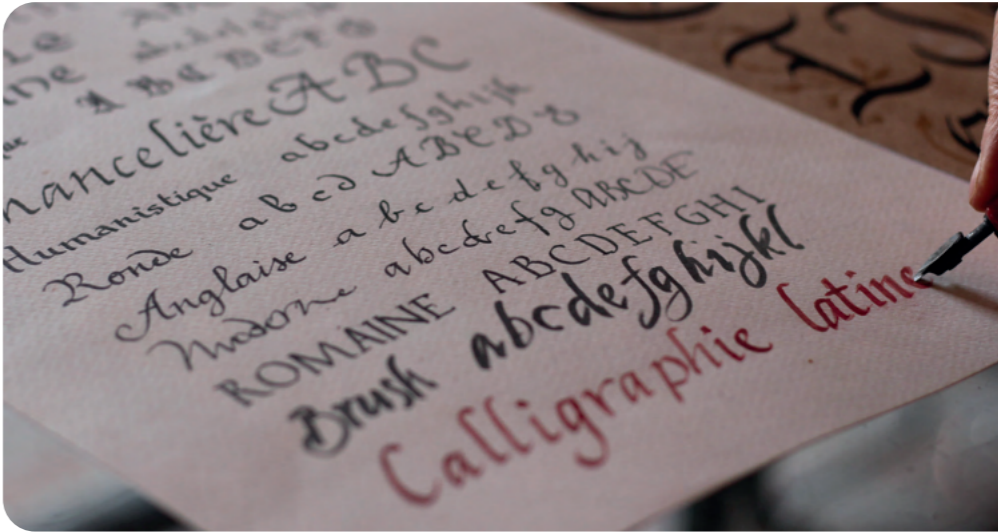 A B C D E F G
hancelière A B C
Humanistique abcdefghijk
Ronde abcd ABCD
Anglaise abcdefghij
abcdefg ABCDE
ROMAINE ABCDEFGHI
Brush abcdefghijkl
Calligraphie latine